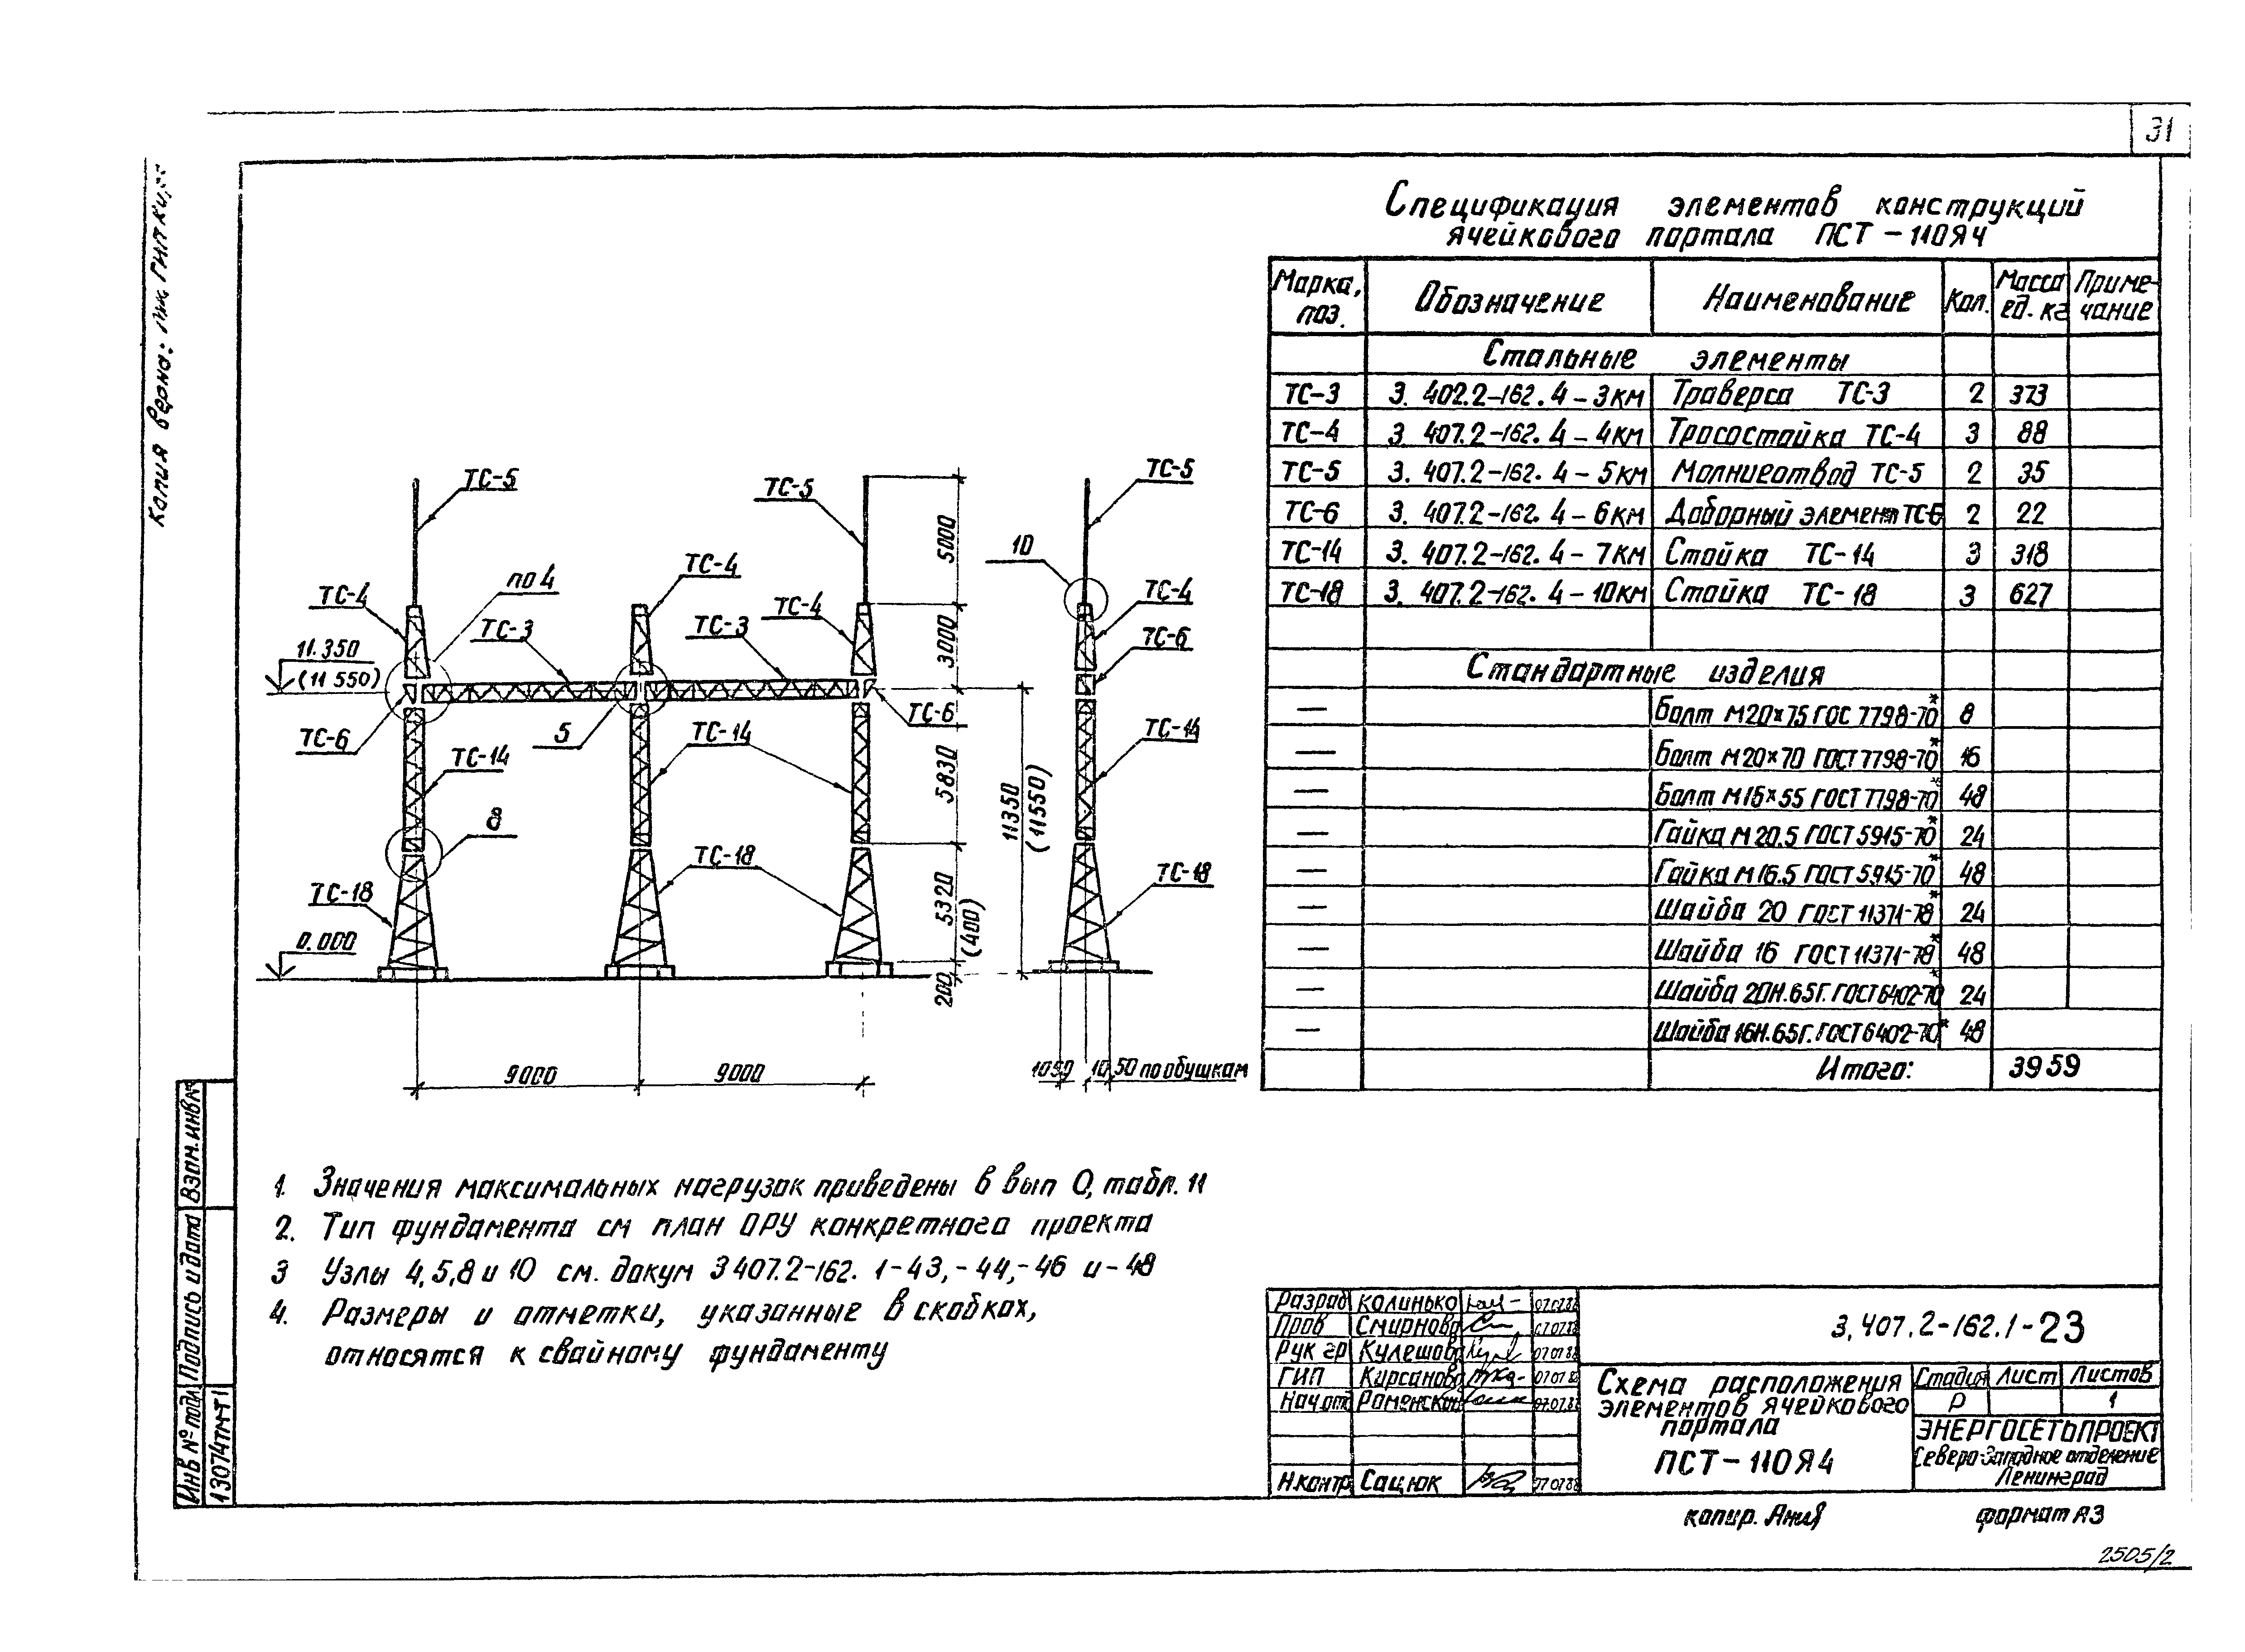 31
Копия верна:
Спецификация элементов конструкций
ячейкового портала ПСТ-110Я4
Марка, поз. Обозначение Наименование Кол. Масса ед. кг Примечание
Стальные элементы
ТС-3 3. 402.2-162. 4-3км Траверса ТС-3 2 373
ТС-4 3 407.2-162. 4-4км Тросостойка ТС-4 3 88
ТС-5 3. 407.2-162. 4-5км Молниеотвод ТС-5 2 35
ТС-6 3. 407.2-162. 4-6км Доборный элемент ТС-6 2 22
ТС-14 3. 407.2-162. 4-7км Стойка ТС-14 3 318
ТС-18 3. 407.2-162. 4-10км Стойка ТС-18 3 627
Стандартные изделия
— Болт М20×75 ГОС 7798-70* 8
— Болт М20×70 ГОСТ 7798-70* 16
— Болт М16×55 ГОСТ 7798-70* 48
— Гайка М20.5 ГОСТ 5915-70* 24
— Гайка М16.5 ГОСТ 5915-70* 48
— Шайба 20 ГОСТ 11371-78* 24
— Шайба 16 ГОСТ 11371-78* 48
— Шайба 20Н.65Г. ГОСТ 6402-70* 24
— Шайба 16Н.65Г. ГОСТ 6402-70* 48
Итого: 3959
ТС-5
ТС-5
ТС-5
10
ТС-4
по 4
ТС-4
ТС-4
ТС-4
ТС-3
ТС-3
ТС-6
11.350
(11 550)
ТС-6
5
ТС-6
ТС-14
ТС-14
ТС-14
8
ТС-18
ТС-18
ТС-18
0.000
5000
3000
5830
5320
(400)
200
11350
(11550)
9000
9000
1050
1050 по обушкам
1. Значения максимальных нагрузок приведены в вып 0, табл. 11
2. Тип фундамента см план ОРУ конкретного проекта
3 Узлы 4,5,8 и 10 см. докум 3 407.2-162. 1-43,-44,-46 и-48
4. Размеры и отметки, указанные в скобках,
относятся к свайному фундаменту
Взам.инв№
Подпись и дата
Инв № подл
13074тм-т1
Разраб Калинько 07.07.88
Пров Смирнова 07.07.88
Рук гр Кулешова 07 07 88
ГИП Кирсанова 07 07 88
Нач отд Роменский 07.07.88
Н.контр Сацюк 07 07 88
3.407.2-162.1-23
Схема расположения
элементов ячейкового
портала
ПСТ-110Я4
Стадия Лист Листов
Р 1
ЭНЕРГОСЕТЬПРОЕКТ
Северо-Западное отделение
Ленинград
копир.
формат А3
2505/2